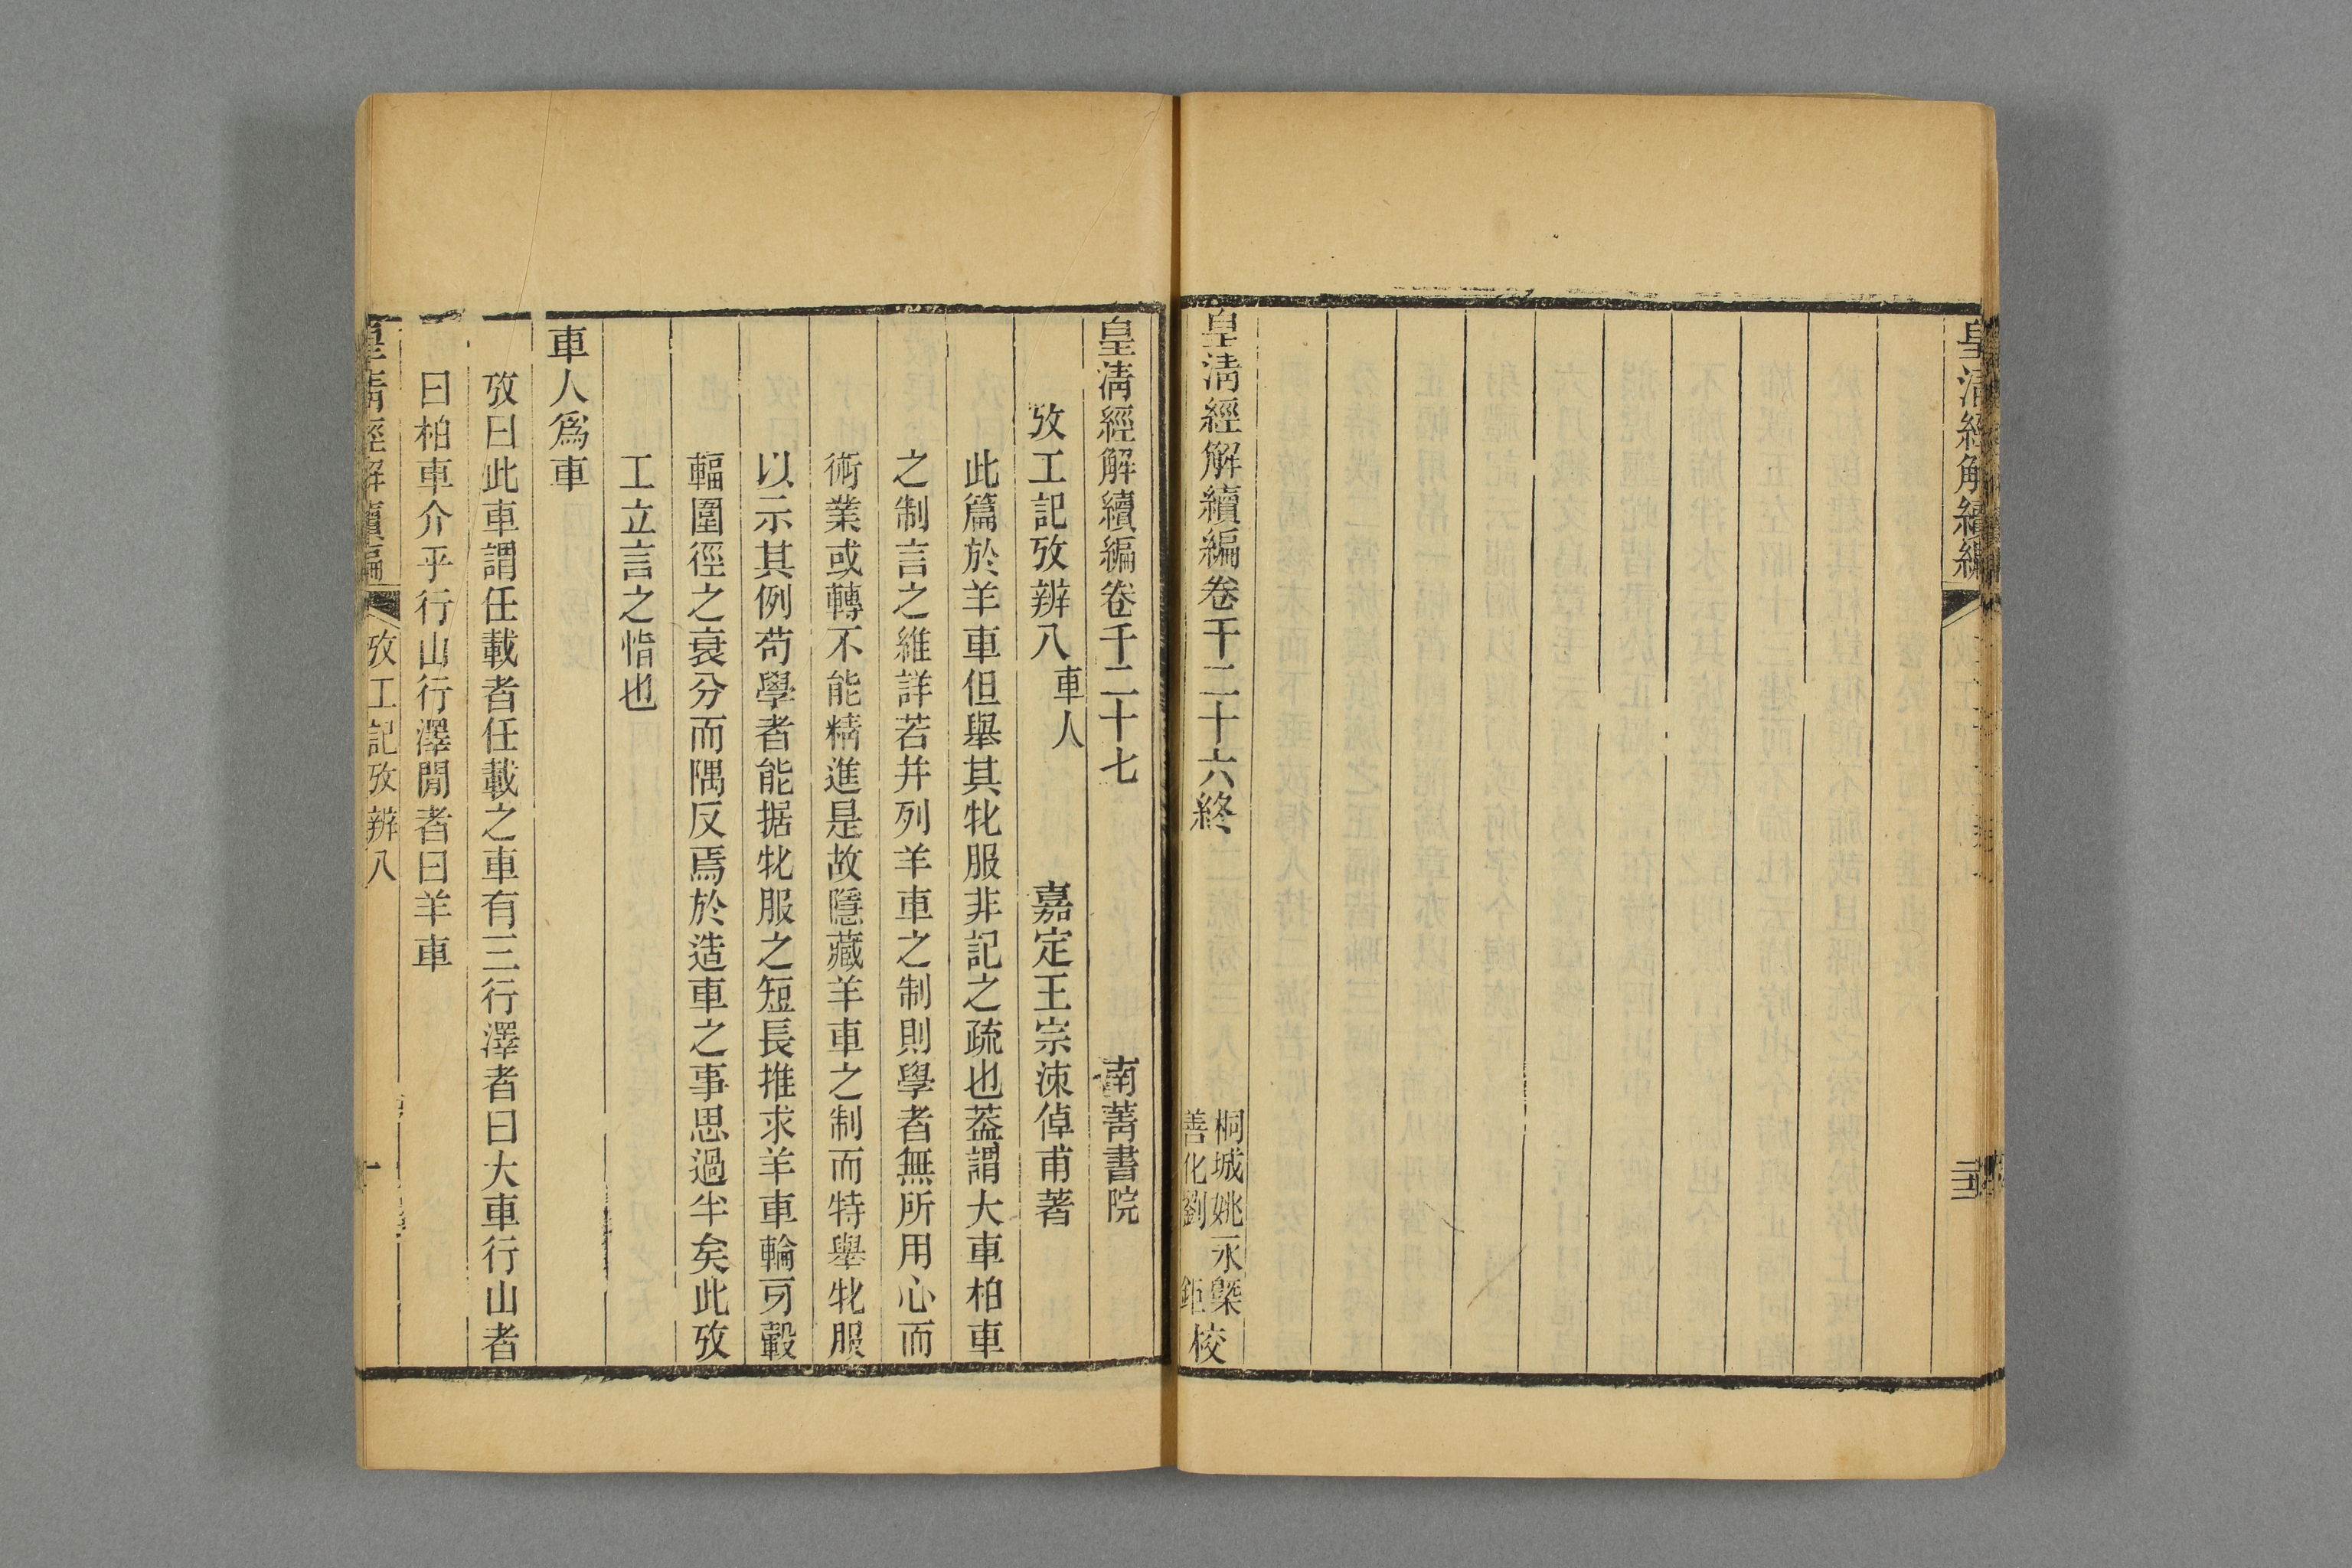 皇清經解續編
皇清經解續編卷千二十六終
桐城姚永㮣
善化劉鉅
校
皇清經解續編卷千二十七
南菁書院
攷工記攷辨八
車人
嘉定王宗涑倬甫著
此篇於羊車但舉其牝服非記之疏也葢謂大車柏車
之制言之維詳若并列羊車之制則學者無所用心而
術業或轉不能精進是故隱藏羊車之制而特舉牝服
以示其例苟學者能据牝服之短長推求羊車輪牙轂
輻圍徑之衰分而隅反焉於造車之事思過半矣此攷
工立言之恉也
車人爲車
攷曰此車謂任載者任載之車有三行澤者曰大車行山者
曰柏車介乎行山行澤閒者曰羊車
皇清經解續編
攷工記攷辨八
一